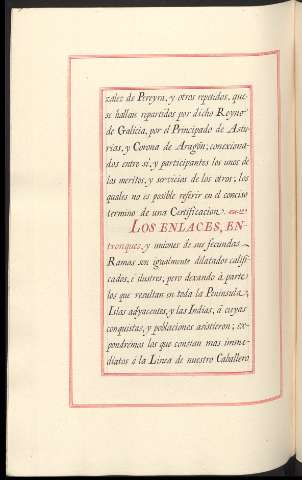 zalez de Pereyra, y otros repetidos, que
se hallan repartidos por dicho Reyno
de Galicia, por el Principado de Astu
rias, y Corona de Aragón; conexiona-
dos entre sí, y participantes los unos de
los meritos, y servicios de los otros; los
quales no es posible referir en el conciso
termino de una Certificacion.
LOS ENLACES, EN-
tronques, y uniones de sus fecundas
Ramas son igualmente dilatados califi-
cados, è ilustres; pero dexando á parte
los que resultan en toda la Peninsula,
Islas adyacentes, y las Indias, á cuyas
conquistas, y poblaciones asistieron; ex-
pondrémos los que constan mas inme-
diatos á la Linea de nuestro Caballero